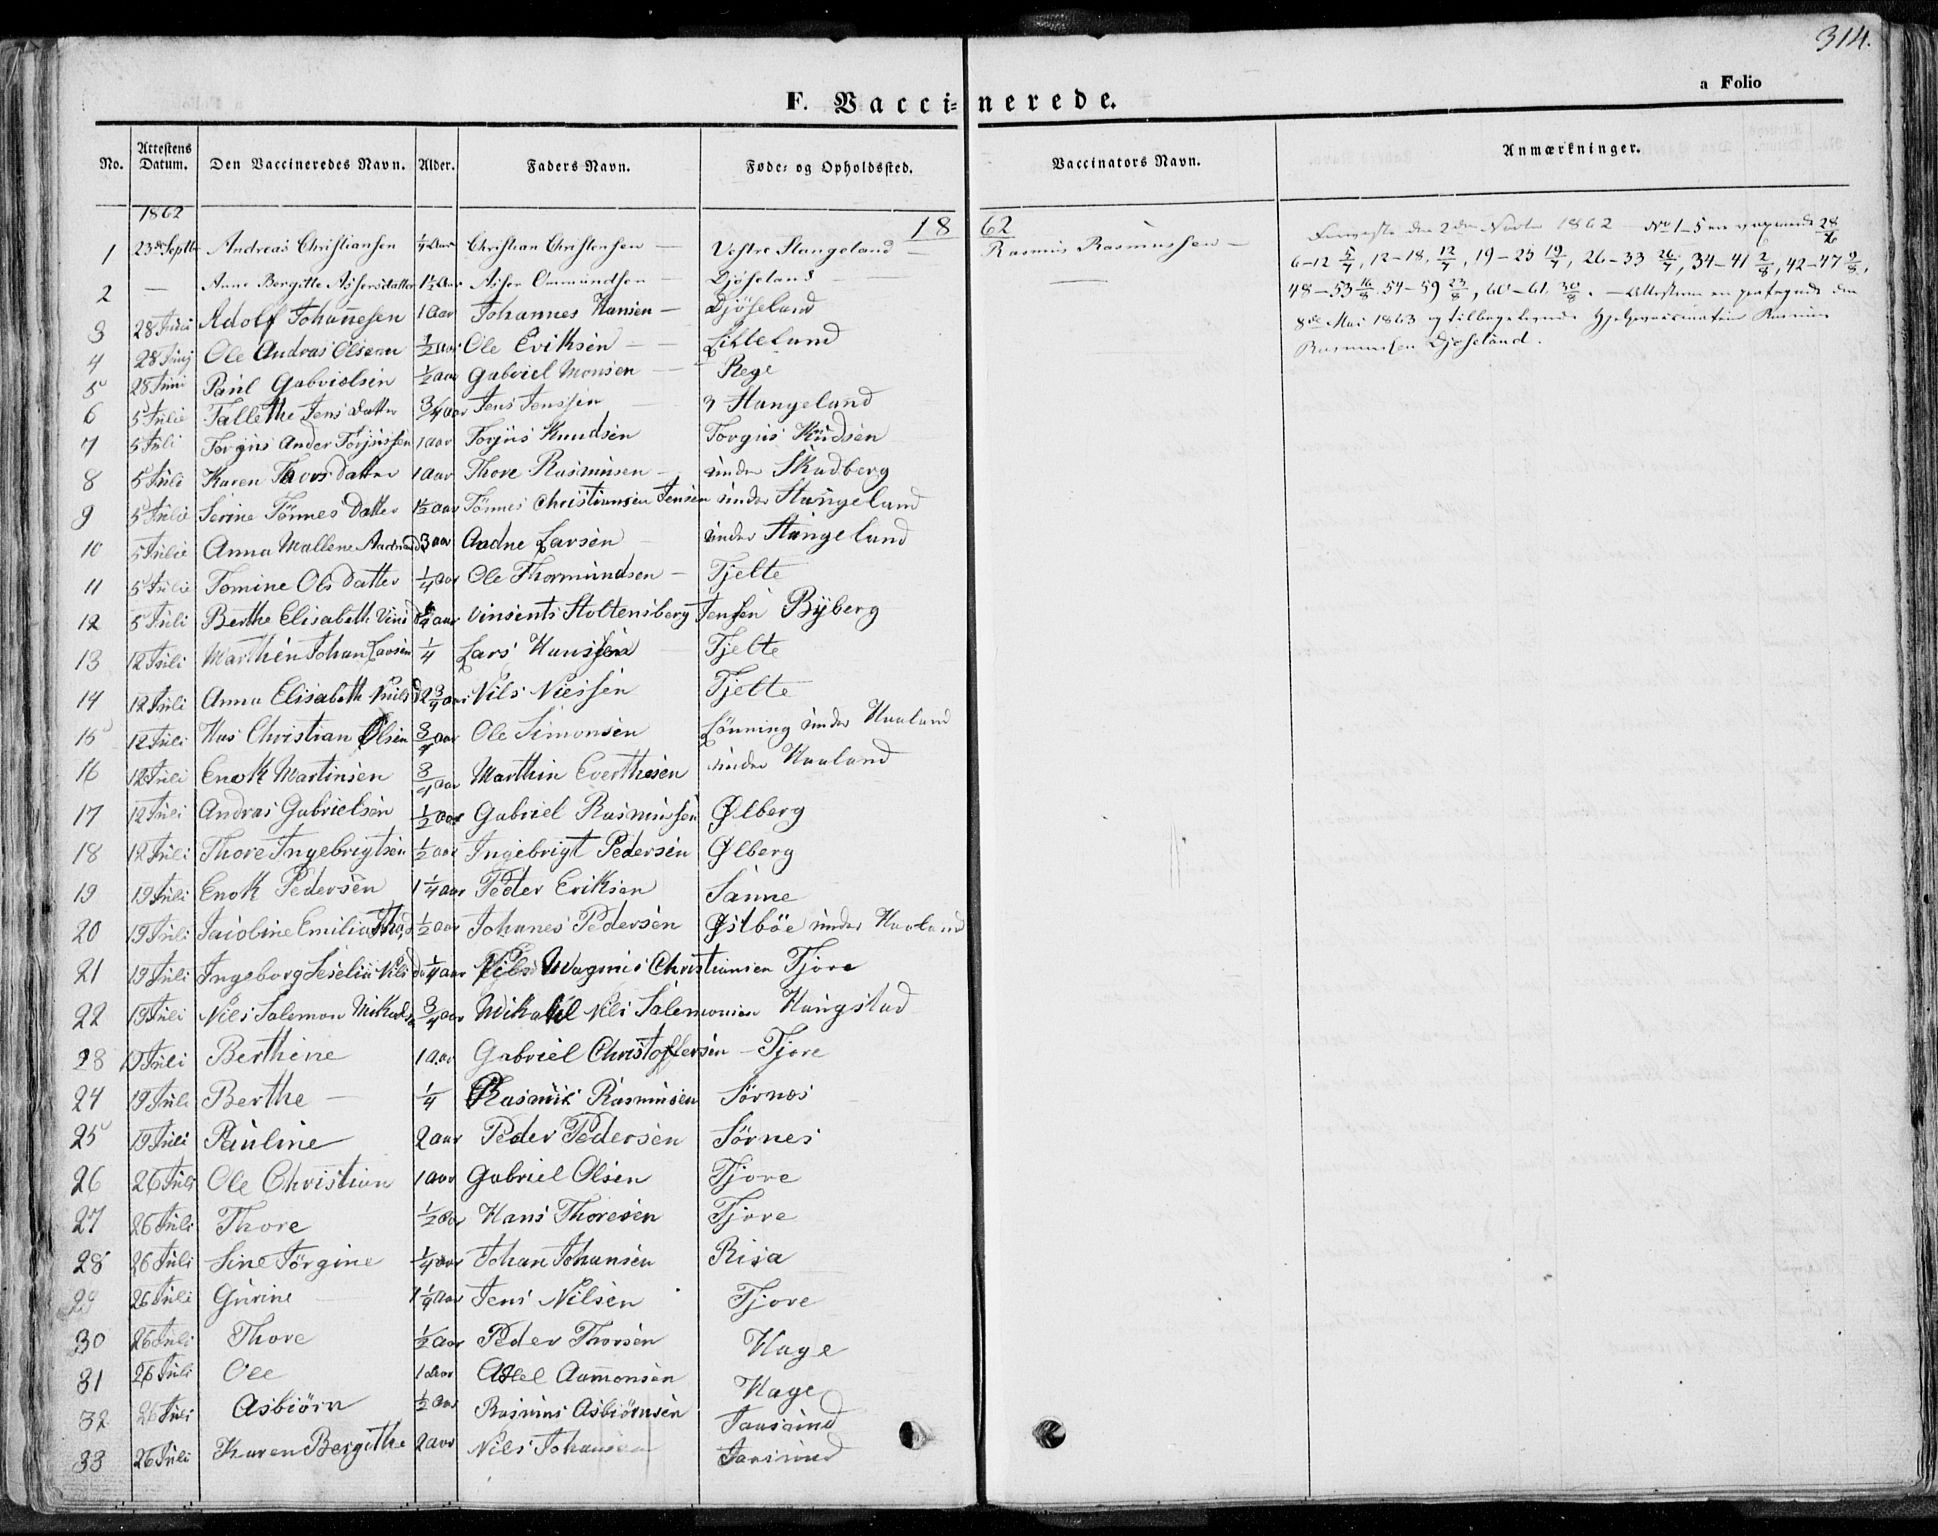 314.
a Folio
F. Vaccinerede.
No. Attestens Datum. Den Vaccineredes Navn. Alder. Faders Navn. Føde- og Opholdssted. Vaccinators Navn. Anmærkninger.
1862 1862
1 23de Septbr Andreas Christiansen 1/4 Aar Christian Christensen — Vestre Stangeland — Rasmus Rasmussen —
2 — Anne Bergitte Asser Ommundsen — Djøseland —
3 28 Juni Adolf Tohannesen 1 Aar Tohannes Hansen — Djöseland
4 28 Junj Ole Andras Olsen 1/2 aar Ole Eriksen — Lilleland
5 28 Juni Paul Gabrielsen 1/2 aar Gabriel Monsen — Rege
6 5 Julie Tallethe Jens Datter 3/4 aar Jens Jenssen — Stangeland
7 5 Juli Torgus Ander Torjussen 1 aar Torjus Knudsen Torgus Knudsen
8 5 Juli Karen Thors Datter 1 aar Thore Rasmusen — under Skadberg
9 5 Julie Serine Tönnes Datter 1 1/2 aar Tönnes Christiansen Jensen under Stangeland
10 5 Julie Anna Mallene 3 aar Aadne Larsen — under Stangeland
11 5 Julie Tomine Ols Datter 1/4 aar Ole Thormundsen — Tjelte
12 5 Juli Berthe Elisabeth aar Vinsents Stoltensberg Jensen Byberg
13 12 Juli Marthin Johan Larsen 1/4 Lars Hanssen — Tjelte
14 12 Juli Anna Elisabeth Niels d 2 3/4 aar Nils Nielsen Tjelte
15 12 Juli Has Christian Olsen 3/4 aar Ole Simonsen Lönning under Haaland
16 12 Juli Enok Martinsen 3/4 aar Marthin Everthesen under Haaland
17 12 Juli Andras Gabrielsen 1/2 aar Gabriel Rasmussen Ølberg
18 12 Juli Thore Ingebrigtsen 1/2 aar Ingebrigt Pedersen Ølberg
19 19 Juli Enok Pedersen 1 1/4 aar Peder Eriksen Sanne
20 19 Juli Jacobine Emilia 1/2 aar Johanes Pedersen Østböe under Haaland
21 19 Juli Ingeborg Seselia Nils d 1/4 aar Nils Magnus Christiansen Tjore
22 19 Juli Nils Salemon 3/4 aar Mikahl Nils Salemonsen Haugstad
23 19 Juli Berthine 1 aar Gabriel Christoffersen — Tjore
24 19 Juli Berthe — 1/4 Rasmus Rasmusen Sörnes
25 19 Juli Pauline 2 aar Peder Pedersen Sörnes
26 26 Juli Ole Christian 1 aar Gabriel Olsen Tjore
27 26 Juli Thore 1/2 aar Hans Thoresen Tjore
28 26 Juli Sine Jörgine 1/4 aar Johan Johansen Risa
29 26 Juli Gurine 1 1/4 aar Jens Nilsen Tjore
30 26 Juli Thore 1/2 aar Peder Thorsen Hage
31 26 Juli Ole 1 aar Aamonsen Hage
32 26 Juli Asbiörn 1/2 aar Rasmus Asbiörnsen
33 26 Juli Karen Bergithe 2 aar Nils Johansen
den 2den 1862 No 1–5 28/6
6–12 5/7, 12–18, 12/7, 19–25 19/7, 26–33 26/7, 34–41 2/8, 42–47 9/8,
48–53 16/8, 54–59 23/8, 60–61 30/8. — den
8de Mai 1863 og Rasmus
Rasmussen Djøseland.